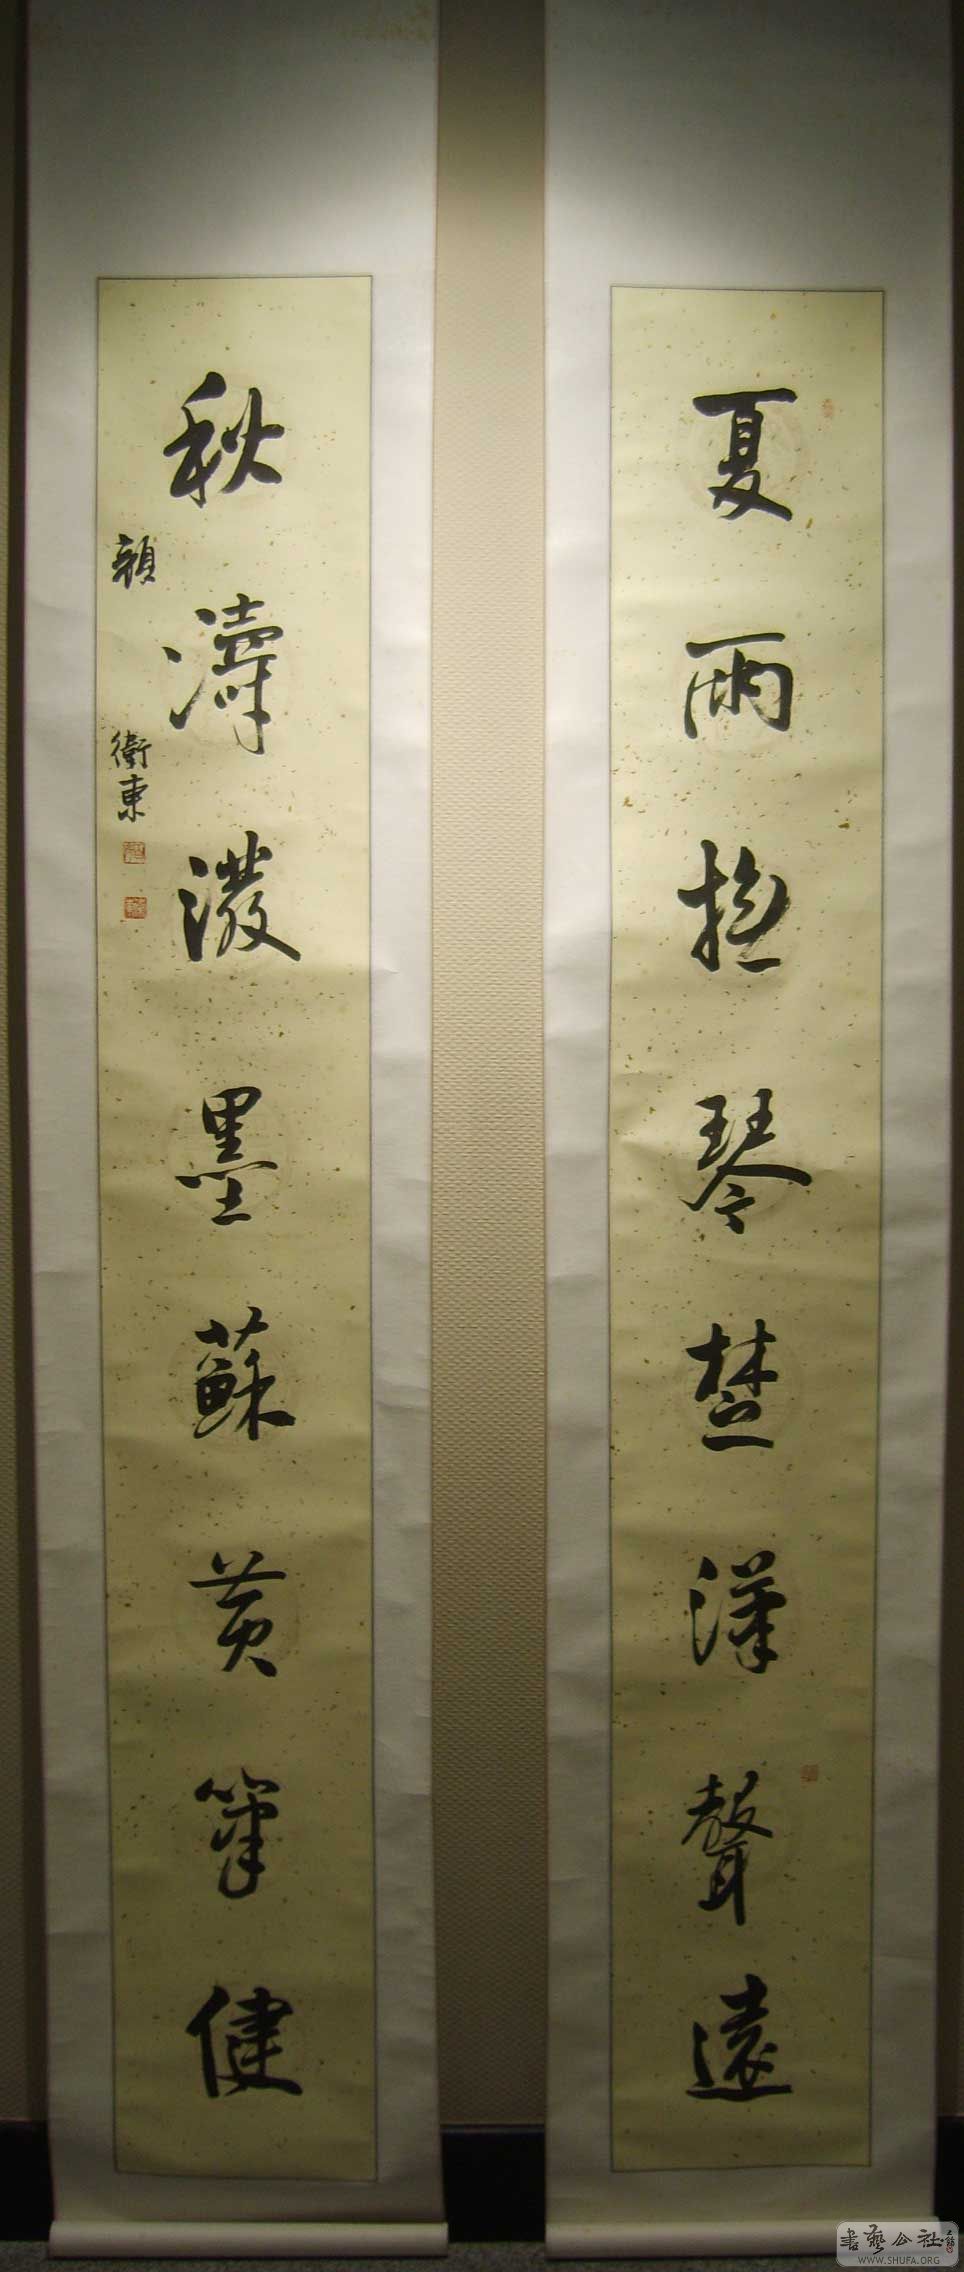 夏雨撫琴楚漢聲遠
秋濤潑墨蘇黃筆健
顏衛東
書藝公社
WWW.SHUFA.ORG